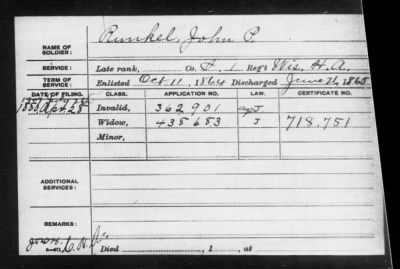 NAME OF SOLDIER: Runkel, John P.
SERVICE: Late rank, Co. F, 1 Reg't Wis. H.A.
TERM OF SERVICE: Enlisted Oct. 11, 1864 Discharged June 26, 1865
DATE OF FILING. CLASS. APPLICATION NO. LAW. CERTIFICATE NO.
Invalid, 362901
Apr 28 Widow, 435683 J 718.751
Minor,
ADDITIONAL SERVICES:
REMARKS:
Died , 1 , at